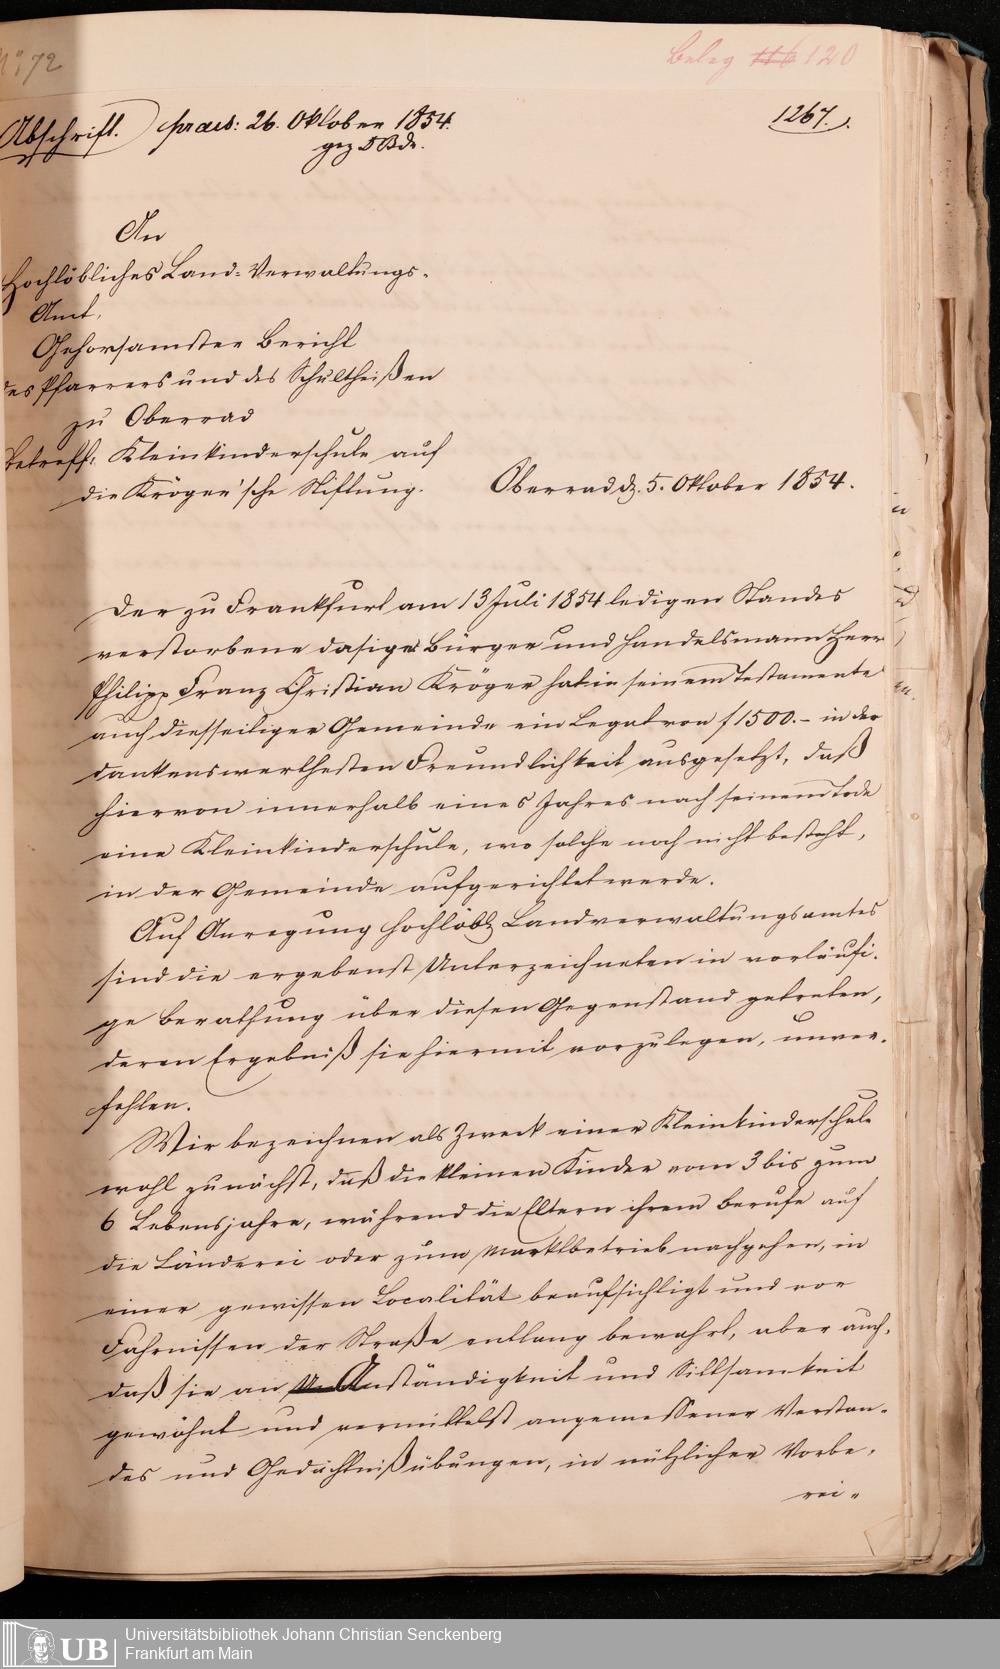 No 72
Beleg 116 120
Abschrift. praes: 26. Oktober 1854.
1267.
An
Hochlöbliches Land-Verwaltungs-
Amt,
Gehorsamster Bericht
des Pfarrers und des Schultheißen
zu Oberrad
Betreff: Kleinkinderschule auf
die Kröger'sche Stiftung.
Oberrad d. 5. Oktober 1854.
Der zu Frankfurt am 13 Juli 1854 ledigen Standes
verstorbene dasiger Bürger und Handelsmann Herr
Philipp Franz Christian Kröger hat in seinem Testamente
auch diesseitiger Gemeinde ein Legat von f 1500.- in der
dankenswerthesten Freundlichkeit ausgesetzt, daß
hiervon innerhalb eines Jahres nach seinem Tode
eine Kleinkinderschule, wo solche noch nicht besteht,
in der Gemeinde aufgerichtet werde.
Auf Anregung Hochlöbl Landverwaltungsamtes
sind die ergebenst Unterzeichneten in vorläufi-
ge Berathung über diesen Gegenstand getreten,
deren Ergebniß sie hiermit vorzulegen, unver-
fehlen.
Wir bezeichnen als Zweck einer Kleinkinderschule
wohl zunächst, daß die kleinen Kinder vom 3 bis zum
6 Lebensjahre, während die Eltern ihrem Berufe auf
die Länderei oder zum Marktbetrieb nachgehen, in
einer gewissen Localität beaufsichtigt und vor
Fahrnissen der Straße entlang bewahrt, aber auch,
daß sie an Anständigkeit und Sittsamkeit
gewöhnt und vermittelst angemessener Verstan-
des und Gedächtnißübungen, in nützlicher Vorbe-
rei-
UB
Universitätsbibliothek Johann Christian Senckenberg
Frankfurt am Main